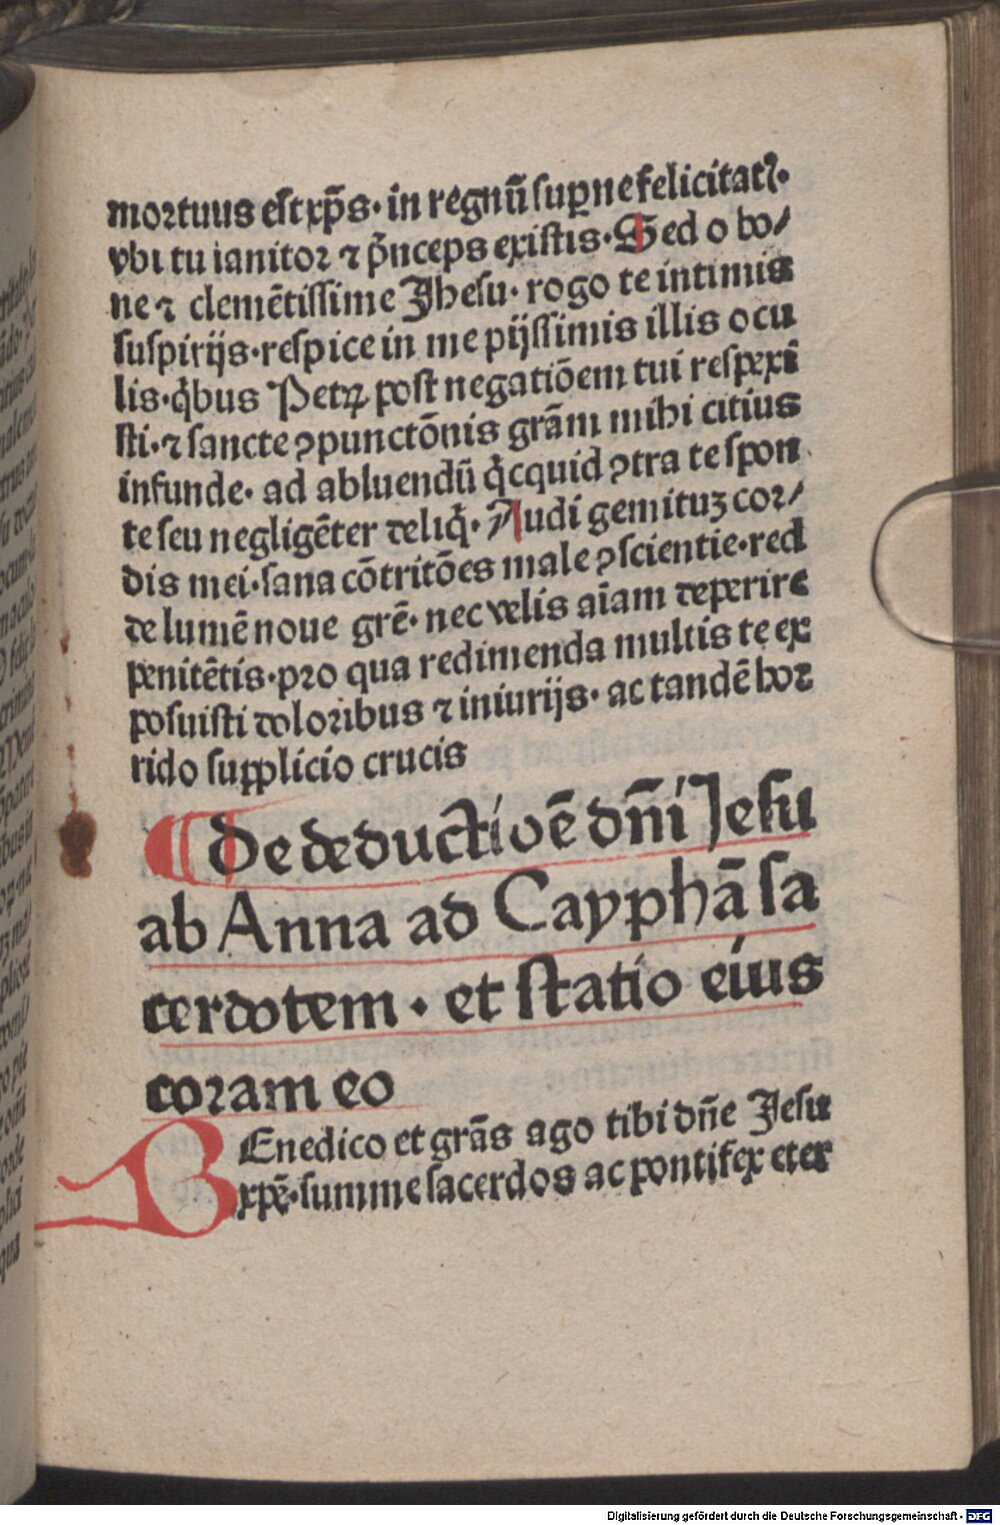 mortuus est xp̄s· in regnū suꝑne felicitatꝭ·
vbi tu ianitor ⁊ p̄nceps existis· Sed o bo/
ne ⁊ clemētissime Jhesu· rogo te intimis
suspirijs· respice in me pijssimis illis ocu
lis· q̇bus Petꝝ post negatiōem tui respexi
sti· ⁊ sancte ꝯpunctōnis grām mihi citius
infunde· ad abluendū q̇cquid ꝯtra te spon
te seu negligēter deliq̇· Audi gemituꝫ cor/
dis mei· sana cōtritōes male ꝯscientie· red
de lumē noue grē· nec velis aīam deperire
penitētis· pro qua redimenda multis te ex
posuisti doloribus ⁊ iniurijs· ac tandē hor
rido supplicio crucis
¶ De deductiōe dn̄i Jesu
ab Anna ad Cayphā sa
cerdotem · et statio eius
coram eo
BEnedico et grās ago tibi dn̄e Jesu
xpē· summe sacerdos ac pontifex eter
Digitalisierung gefördert durch die Deutsche Forschungsgemeinschaft - DFG